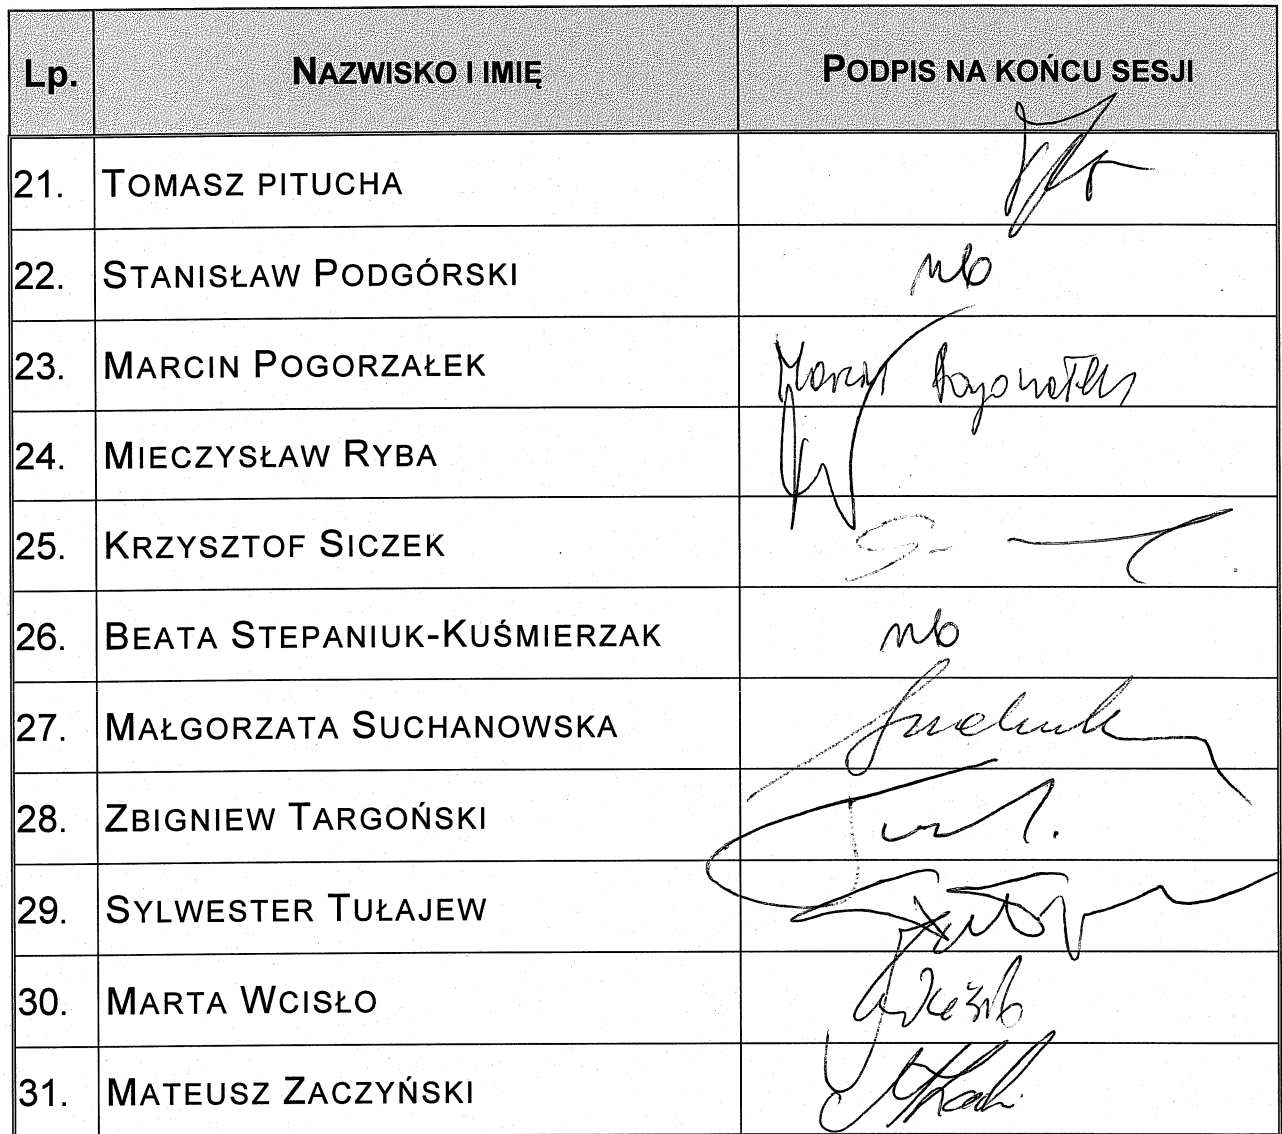 Lp. NAZWISKO I IMIĘ PODPIS NA KOŃCU SESJI
21. TOMASZ PITUCHA
22. STANISŁAW PODGÓRSKI nb
23. MARCIN POGORZAŁEK Marcin Pogorzałek
24. MIECZYSŁAW RYBA
25. KRZYSZTOF SICZEK
26. BEATA STEPANIUK-KUŚMIERZAK nb
27. MAŁGORZATA SUCHANOWSKA
28. ZBIGNIEW TARGOŃSKI
29. SYLWESTER TUŁAJEW
30. MARTA WCISŁO
31. MATEUSZ ZACZYŃSKI